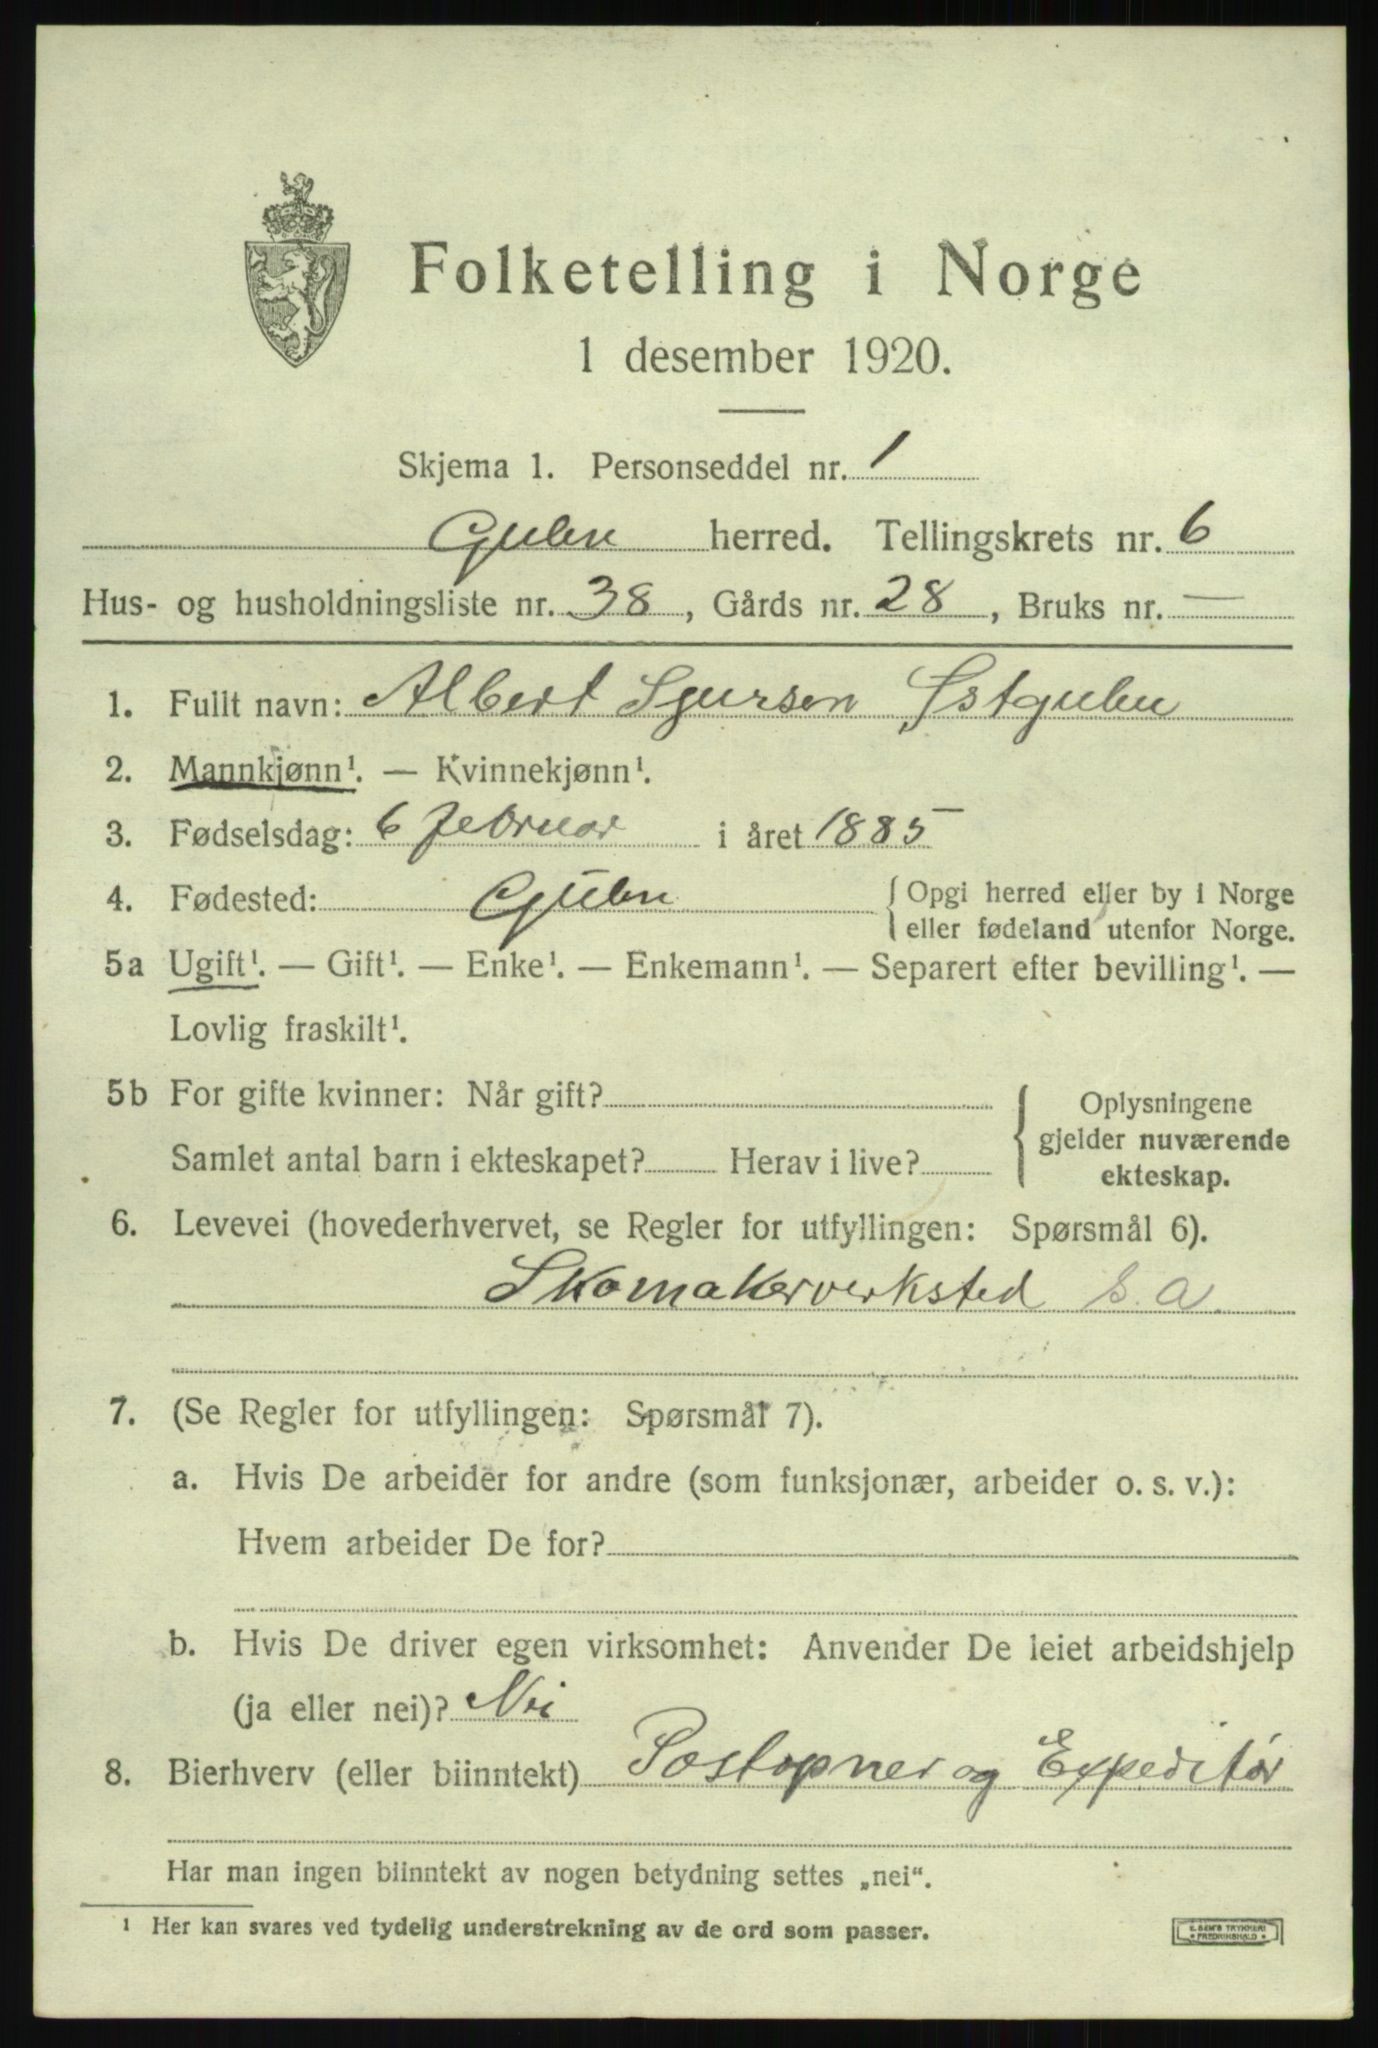 Folketelling i Norge
1 desember 1920.
Skjema 1. Personseddel nr. 1
Gulen herred. Tellingskrets nr. 6
Hus- og husholdningsliste nr. 38, Gårds nr. 28, Bruks nr. —
1. Fullt navn: Albert Sjursen Østgulen
2. Mannkjønn¹. — Kvinnekjønn¹.
3. Fødselsdag: 6 februar i året 1885
4. Fødested: Gulen { Opgi herred eller by i Norge
eller fødeland utenfor Norge.
5a Ugift¹. — Gift¹. — Enke¹. — Enkemann¹. — Separert efter bevilling¹. —
Lovlig fraskilt¹.
5b For gifte kvinner: Når gift? Oplysningene
gjelder nuværende
Samlet antal barn i ekteskapet? Herav i live? ekteskap.
6. Levevei (hovederhvervet, se Regler for utfyllingen: Spørsmål 6).
Skomakerverksted s. a.
7. (Se Regler for utfyllingen: Spørsmål 7).
a. Hvis De arbeider for andre (som funksjonær, arbeider o. s. v.):
Hvem arbeider De for?
b. Hvis De driver egen virksomhet: Anvender De leiet arbeidshjelp
(ja eller nei)? Nei
8. Bierhverv (eller biinntekt) Postopner og Expeditør
Har man ingen biinntekt av nogen betydning settes „nei“.
¹ Her kan svares ved tydelig understrekning av de ord som passer.
E. SEM'S TRYKKERI
• FREDRIKSHALD •